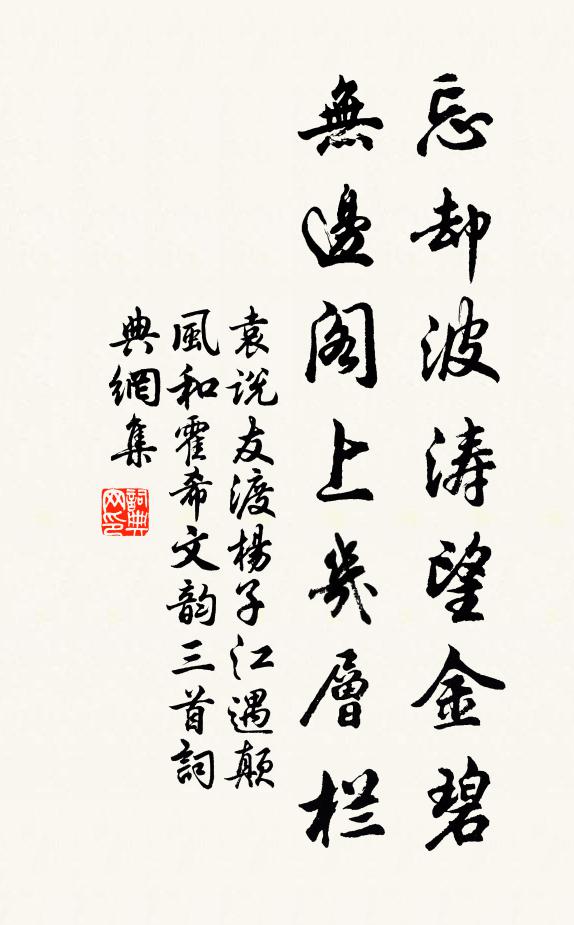 忘却波涛望金碧
無邊阁上幾層栏
袁说友渡楊子江遇颠
風和霍希文韵三首詞
典網集
詞典网印